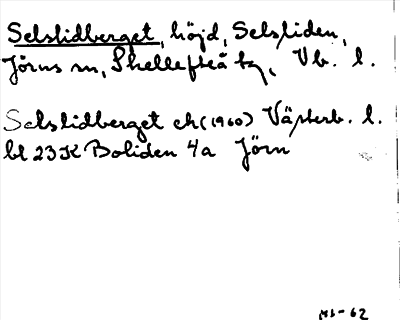 Selslidberget, höjd, Selsliden,
Jörns sn, Skellefteå tg, Vb. l.
Selslidberget ek (1960) Västerb. l.
bl 23K Boliden 4a Jörn
-62